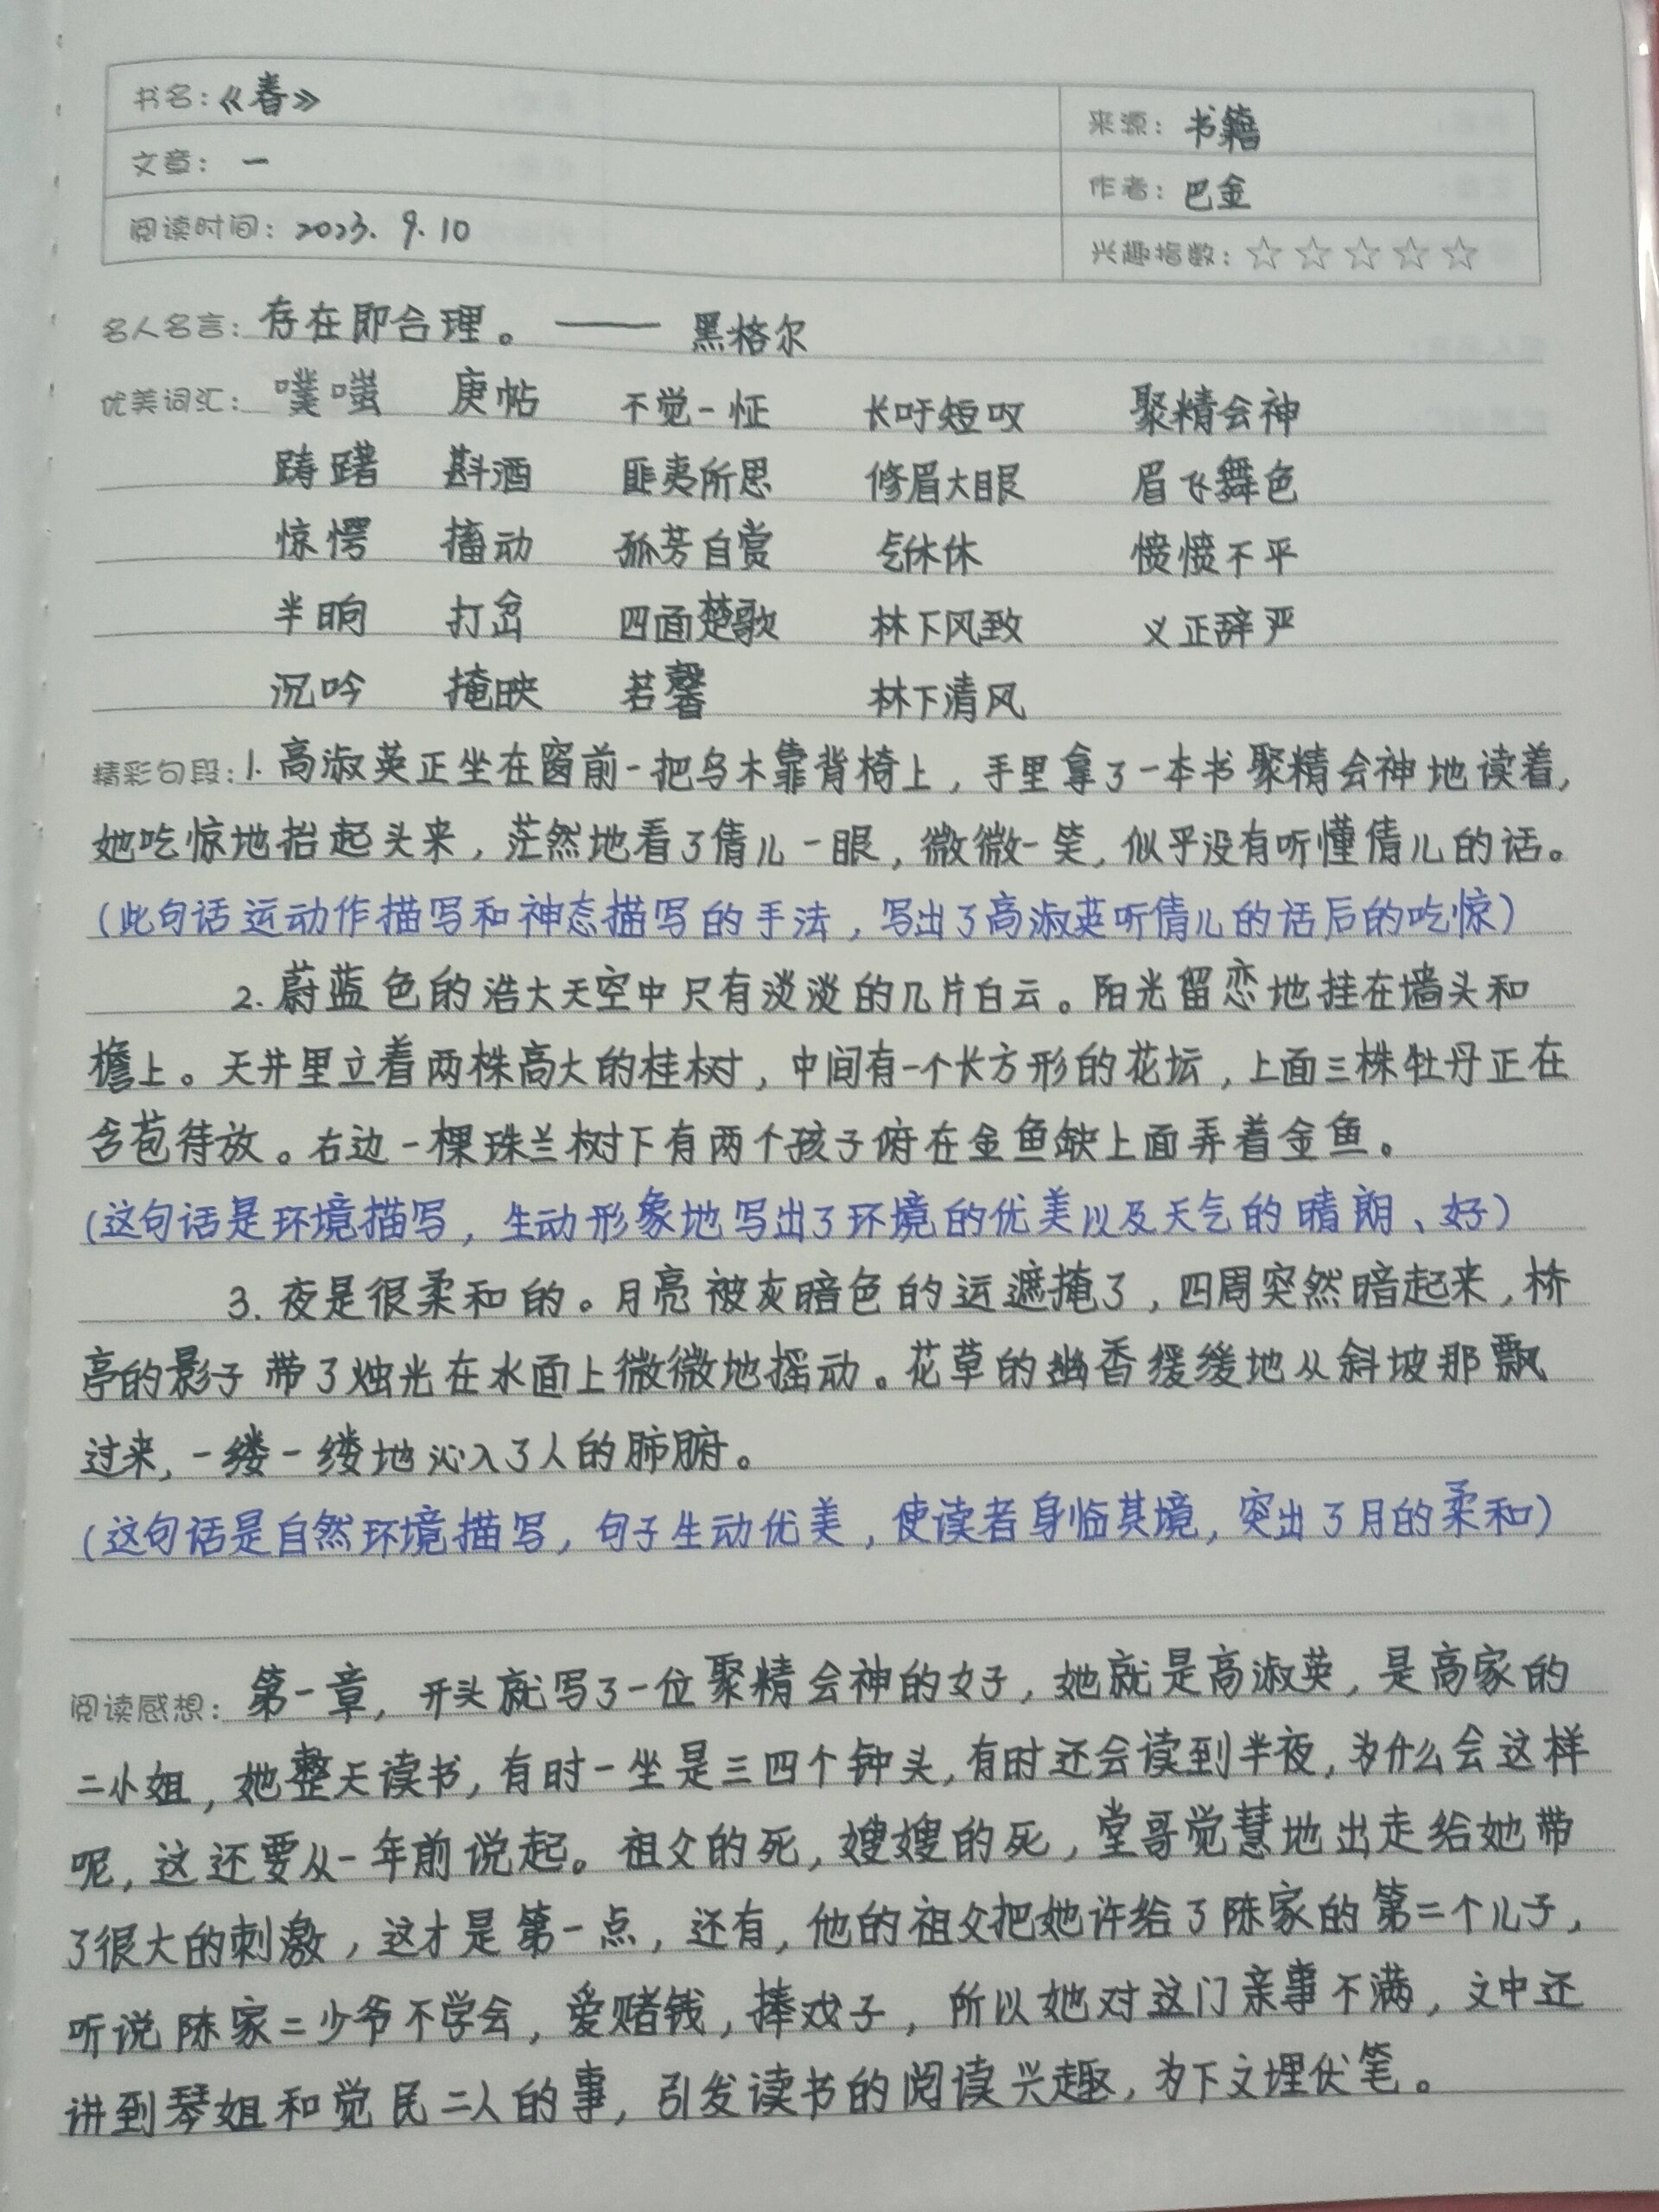 书名：《春》
来源：书籍
文章：一
作者：巴金
阅读时间：2023.9.10
兴趣指数：☆☆☆☆☆
名人名言：存在即合理。——黑格尔
优美词汇：噗嗤 庚帖 不觉一怔 长吁短叹 聚精会神
踌躇 斟酒 匪夷所思 修眉大眼 眉飞舞色
惊愕 搐动 孤芳自赏 气休休 愤愤不平
半晌 打岔 四面楚歌 林下风致 义正辞严
沉吟 掩映 若馨 林下清风
精彩句段：1.高淑英正坐在窗前一把乌木靠背椅上，手里拿了一本书聚精会神地读着，
她吃惊地抬起头来，茫然地看了倩儿一眼，微微一笑，似乎没有听懂倩儿的话。
（此句话运动作描写和神态描写的手法，写出了高淑英听倩儿的话后的吃惊）
2.蔚蓝色的浩大天空中只有淡淡的几片白云。阳光留恋地挂在墙头和
檐上。天井里立着两株高大的桂树，中间有一个长方形的花坛，上面三株牡丹正在
含苞待放。右边一棵珠兰树下有两个孩子俯在金鱼缺上面弄着金鱼。
（这句话是环境描写，生动形象地写出了环境的优美以及天气的晴朗、好）
3.夜是很柔和的。月亮被灰暗色的运遮掩了，四周突然暗起来，桥
亭的影子带了烛光在水面上微微地摇动。花草的幽香缓缓地从斜坡那飘
过来，一缕一缕地沁入了人的肺腑。
（这句话是自然环境描写，句子生动优美，使读者身临其境，突出了月的柔和）
阅读感想：第一章，开头就写了一位聚精会神的女子，她就是高淑英，是高家的
二小姐，她整天读书，有时一坐是三四个钟头，有时还会读到半夜，为什么会这样
呢，这还要从一年前说起。祖父的死，嫂嫂的死，堂哥觉慧地出走给她带
了很大的刺激，这才是第一点，还有，他的祖父把她许给了陈家的第二个儿子，
听说陈家二少爷不学会，爱赌钱，捧戏子，所以她对这门亲事不满，文中还
讲到琴姐和觉民二人的事，引发读书的阅读兴趣，为下文埋伏笔。